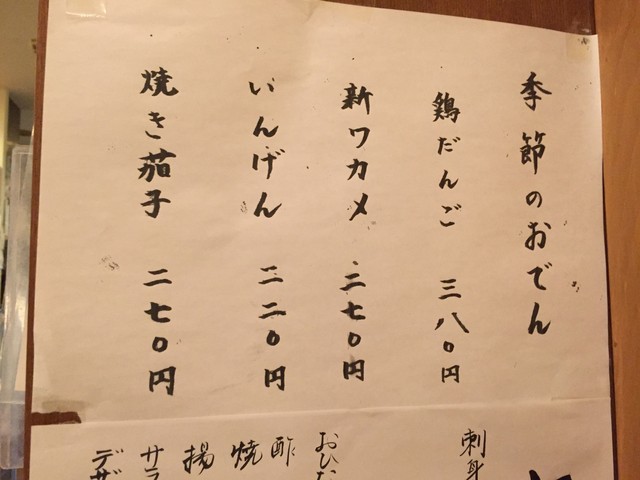 季節のおでん
鶏だんご 三八〇円
新ワカメ 二七〇円
いんげん 二二〇円
焼き茄子 二七〇円
刺身
おひた
酢
焼
揚
サラ
デザ